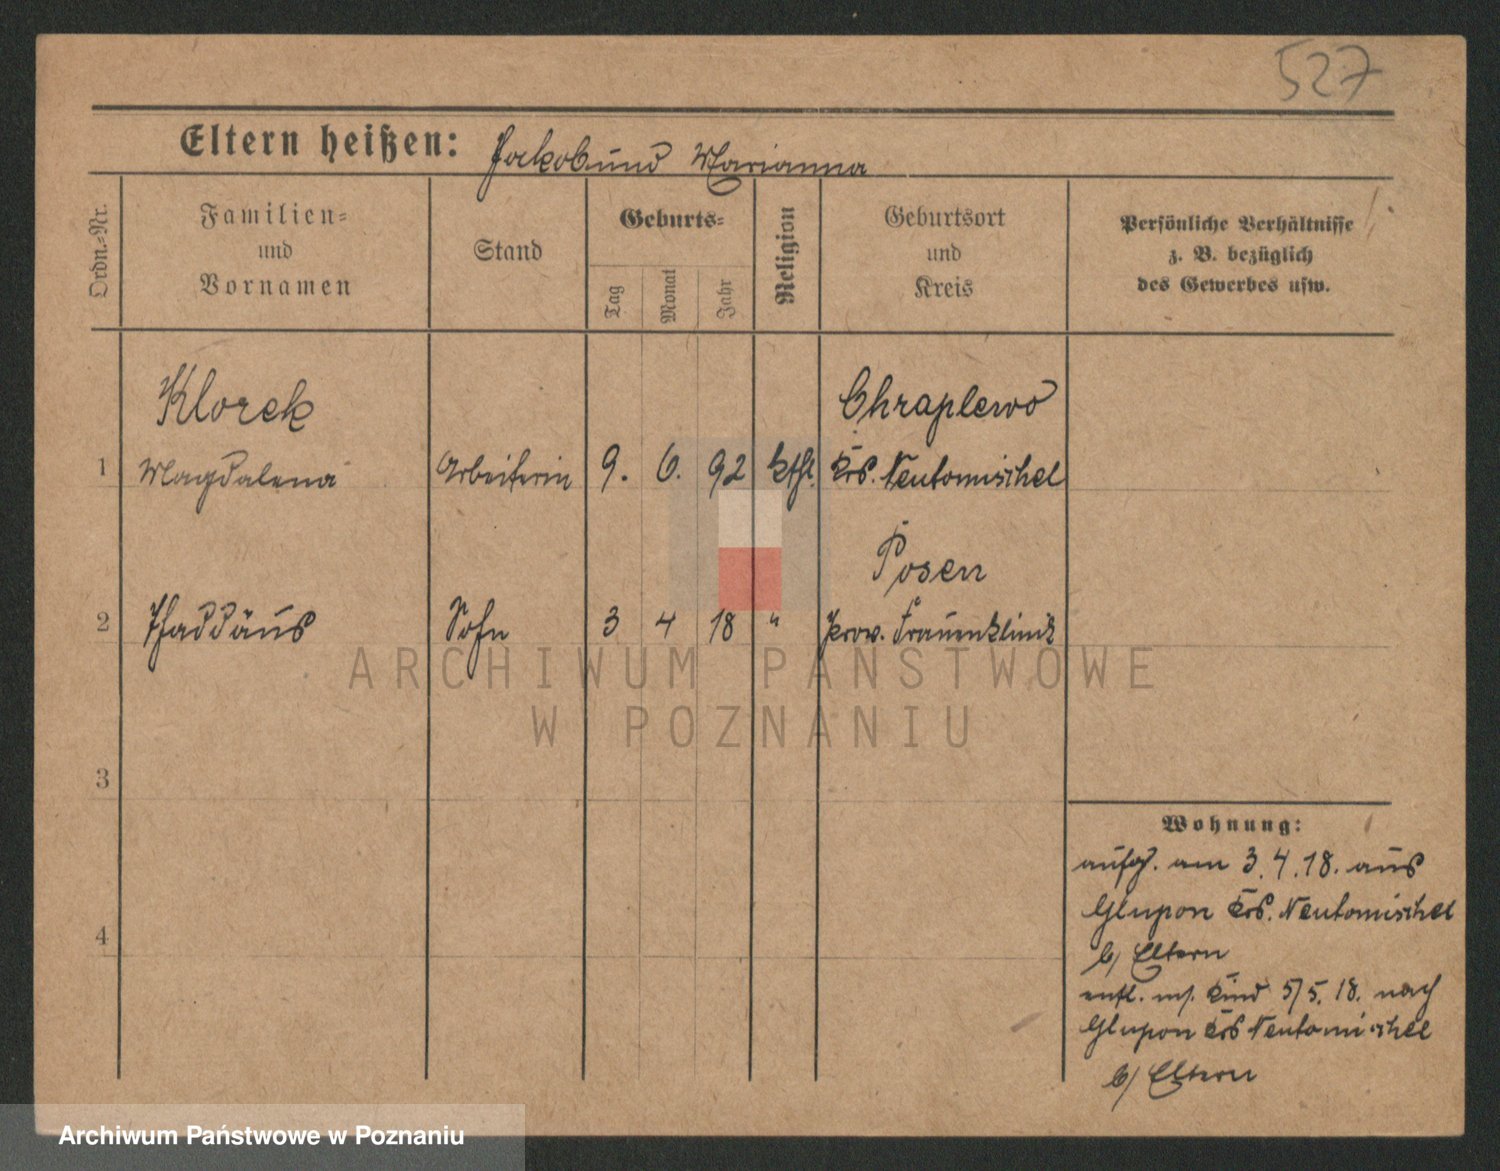 527
Eltern heißen: Jakob und Marianna
Ordn.-Nr.
Familien-
und
Vornamen
Stand
Geburts-
Tag
Monat
Jahr
Religion
Geburtsort
und
Kreis
Persönliche Verhältnisse
z. B. bezüglich
des Gewerbes usw.
Klorek
Chraplewo
1 Magdalena Arbeiterin 9. 6. 92 kth. Krs. Neutomischel
Posen
2 Thaddäus Sohn 3 4 18 " Prov. Frauenklinik
3
4
Wohnung:
aufg. am 3.4.18. aus
Glupon Krs. Neutomischel
b/ Eltern
entl. m/. Kind 5/5. 18. nach
Glupon Krs Neutomischel
b/ Eltern
ARCHIWUM PAŃSTWOWE
W POZNANIU
Archiwum Państwowe w Poznaniu